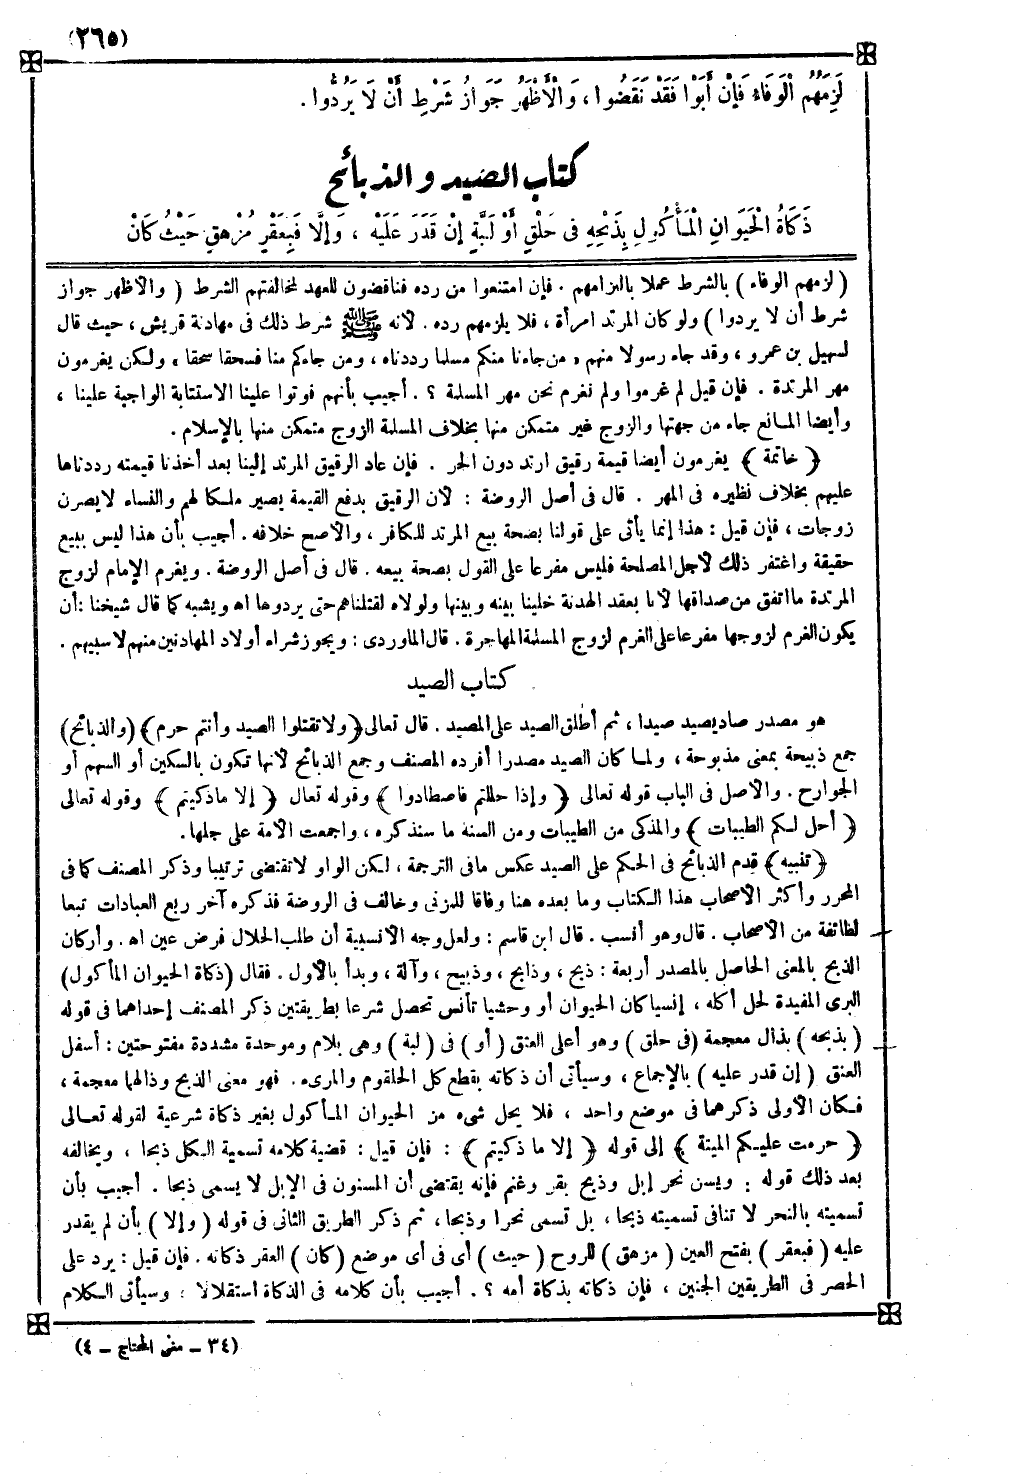 (٢٦٥)
لَزِمَهُمُ الْوَفَاءُ فَإِنْ أَبَوْا فَقَدْ نَقَضُوا، وَالْأَظْهَرُ جَوَازُ شَرْطِ أَنْ لَا يَرُدُّوا.
كتاب الصيد والذبائح
ذَكَاةُ الْحَيَوَانِ الْمَأْكُولِ بِذَبْحِهِ فِى حَلْقٍ أَوْ لَبَّةٍ إِنْ قَدَرَ عَلَيْهِ، وَإِلَّا فَبِعَقْرٍ مُزْهِقٍ حَيْثُ كَانَ
(لزمهم الوفاء) بالشرط عملا بالتزامهم. فإن امتنعوا من رده فناقضون للعهد لمخالفتهم الشرط (والأظهر جواز
شرط أن لا يردوا) ولو كان المرتد امرأة، فلا يلزمهم رده. لأنه ﷺ شرط ذلك فى مهادنة قريش، حيث قال
لسهيل بن عمرو، وقد جاء رسولا منهم « من جاءنا منكم مسلما رددناه، ومن جاءكم منا فسحقا سحقا » ولكن يغرمون
مهر المرتدة. فإن قيل لم غرموا ولم نغرم نحن مهر المسلمة ؟. أجيب بأنهم فوتوا علينا الاستتابة الواجبة علينا،
وأيضا المانع جاء من جهتها والزوج غير متمكن منها بخلاف المسلمة الزوج متمكن منها بالإسلام.
﴿خاتمة﴾ يغرمون أيضا قيمة رقيق ارتد دون الحر. فإن عاد الرقيق المرتد إلينا بعد أخذنا قيمته رددناها
عليهم بخلاف نظيره فى المهر. قال فى أصل الروضة : لأن الرقيق بدفع القيمة يصير ملكا لهم والنساء لا يصرن
زوجات، فإن قيل : هذا إنما يأتى على قولنا بصحة بيع المرتد للكافر، والأصح خلافه. أجيب بأن هذا ليس ببيع
حقيقة واغتفر ذلك لأجل المصلحة فليس مفرعا على القول بصحة بيعه. قال فى أصل الروضة. ويغرم الإمام لزوج
المرتدة ما اتفق من صداقها لأنا بعقد الهدنة خلينا بينه وبينها ولولاه لقتلناهم حتى يردوها اه ويشبه كما قال شيخنا : أن
يكون الغرم لزوجها مفرعا على الغرم لزوج المسلمة المهاجرة. قال الماوردى : ويجوز شراء أولاد المهادنين منهم لا سبيهم.
كتاب الصيد
هو مصدر صاد يصيد صيدا، ثم أطلق الصيد على المصيد. قال تعالى ﴿ولا تقتلوا الصيد وأنتم حرم﴾ (والذبائح)
جمع ذبيحة بمعنى مذبوحة، ولما كان الصيد مصدرا أفرده المصنف وجمع الذبائح لأنها تكون بالسكين أو السهم أو
الجوارح. والأصل فى الباب قوله تعالى ﴿وإذا حللتم فاصطادوا﴾ وقوله تعال ﴿إلا ما ذكيتم﴾ وقوله تعالى
﴿أحل لكم الطيبات﴾ والمذكى من الطيبات ومن السنه ما سنذكره، واجمعت الأمة على حلها.
﴿تنبيه﴾ قدم الذبائح فى الحكم على الصيد عكس مافى الترجمة، لكن الواو لا تقتضى ترتيبا وذكر المصنف كما فى
المحرر وأكثر الأصحاب هذا الكتاب وما بعده هنا وفاقا للمزنى وخالف فى الروضة فذكره آخر ربع العبادات تبعا
لطائفة من الأصحاب. قال وهو أنسب. قال ابن قاسم : ولعل وجه الأنسبية أن طلب الحلال فرض عين اه. وأركان
الذبح بالمعنى الحاصل بالمصدر أربعة : ذبح، وذابح، وذبيح، وآلة، وبدأ بالأول. فقال (ذكاة الحيوان المأكول)
البرى المفيدة لحل أكله، إنسيا كان الحيوان أو وحشيا تأنس تحصل شرعا بطريقتين ذكر المصنف إحداهما فى قوله
(بذبحه) بذال معجمة (فى حلق) وهو أعلى العنق (أو) فى (لبة) وهى بلام وموحدة مشددة مفتوحتين : أسفل
العنق (إن قدر عليه) بالإجماع، وسيأتى أن ذكاته بقطع كل الحلقوم والمرىء. فهو معنى الذبح وذالها معجمة،
فكان الأولى ذكرهما فى موضع واحد، فلا يحل شىء من الحيوان المأكول بغير ذكاة شرعية لقوله تعالى
﴿حرمت عليكم الميتة﴾ إلى قوله ﴿إلا ما ذكيتم﴾ : فإن قيل : قضية كلامه تسمية الكل ذبحا، ويخالفه
بعد ذلك قوله : ويسن نحر إبل وذبح بقر وغنم فإنه يقتضى أن المسنون فى الإبل لا يسمى ذبحا. أجيب بأن
تسميته بالنحر لا تنافى تسميته ذبحا، بل تسمى نحرا وذبحا، ثم ذكر الطريق الثانى فى قوله (وإلا) بأن لم يقدر
عليه (فبعقر) بفتح العين (مزهق) للروح (حيث) أى فى أى موضع (كان) العقر ذكاته. فإن قيل : يرد على
الحصر فى الطريقين الجنين، فإن ذكاته بذكاة أمه ؟. أجيب بأن كلامه فى الذكاة استقلالا : وسيأتى الكلام
(٣٤ – مغنى المحتاج – ٤)